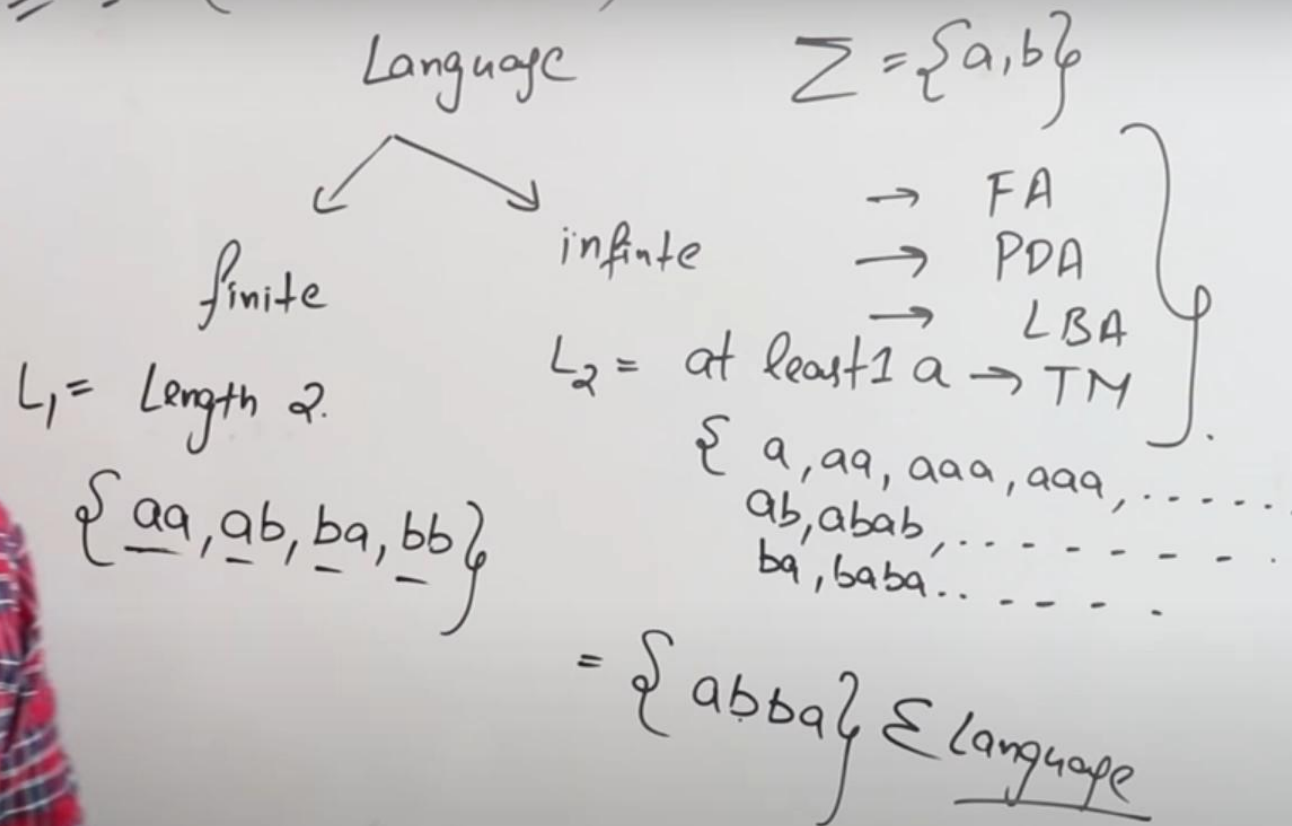 Language
Σ = {a,b}
finite
infinte
→ FA
→ PDA
→ LBA
L₁ = Length 2.
L₂ = at least 1 a → TM
{ aa, ab, ba, bb }
{ a, aa, aaa, aaa, .....
ab, abab, .. - - - - - .
ba, baba.. - - - .
= { abba } Σ Language